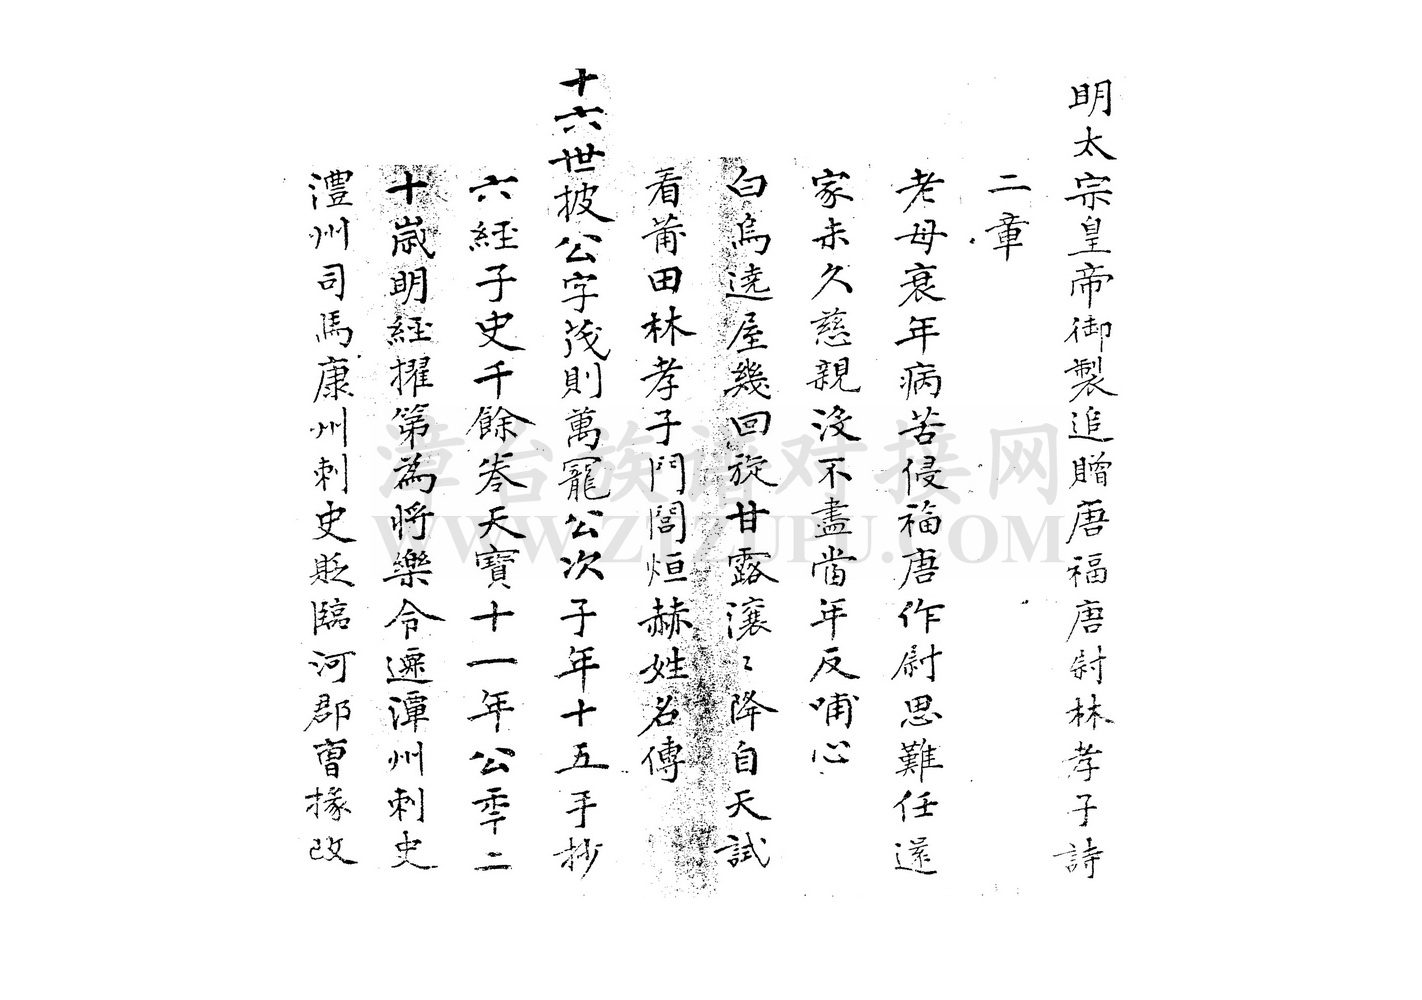 明太宗皇帝御製追贈唐福唐尉林孝子詩
二章
老母衰年病苦侵福唐作尉思難任還
家未久慈親没不盡當年反哺心
白烏遶屋幾回旋甘露瀼〻降自天試
看莆田林孝子門閭烜赫姓名傳
十六世披公字茂則萬寵公次子年十五手抄
六經子史千餘卷天寶十一年公年二
十歲明經擢第為將樂令遷潭州刺史
澧州司馬康州刺史貶臨河郡曹掾改
漳台族谱对接网
WWW.ZTZUPU.COM